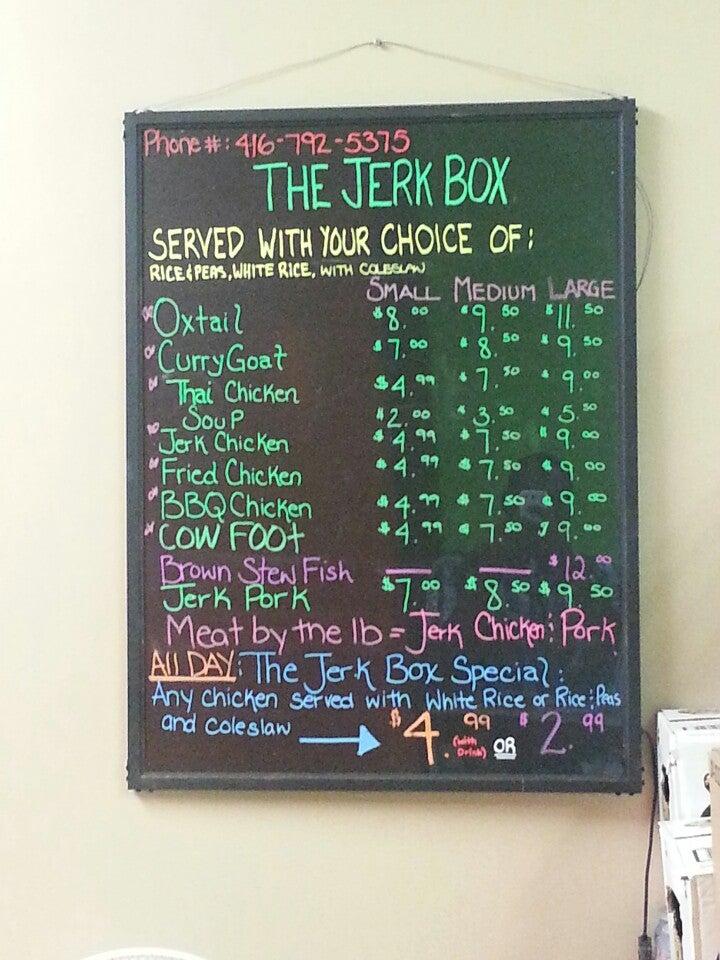 Phone #: 416-792-5375
THE JERK BOX
SERVED WITH YOUR CHOICE OF:
RICE & PEAS, WHITE RICE, WITH COLESLAW
SMALL MEDIUM LARGE
Oxtail $8.00 $9.50 $11.50
Curry Goat $7.00 $8.50 $9.50
Thai Chicken $4.99 $7.50 $9.00
Soup $2.00 $3.50 $5.50
Jerk Chicken $4.99 $7.50 $9.00
Fried Chicken $4.99 $7.50 $9.00
BBQ Chicken $4.99 $7.50 $9.00
COW FOOt $4.99 $7.50 $9.00
Brown Stew Fish — — $12.00
Jerk Pork $7.00 $8.50 $9.50
Meat by the lb = Jerk Chicken & Pork
All DAY: The Jerk Box Special:
Any chicken served with White Rice or Rice & Peas
and coleslaw → $4.99 (with Drink) OR $2.99